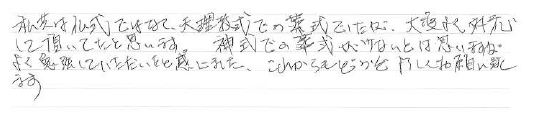 私共は仏式ではなく、天理教式での葬式でしたが、大変よく対応
して頂いたと思います。神式での葬式が少ないとは思いますが
よく勉強していただいたと感じました。これからもどうぞ宜しくお願い致し
ます